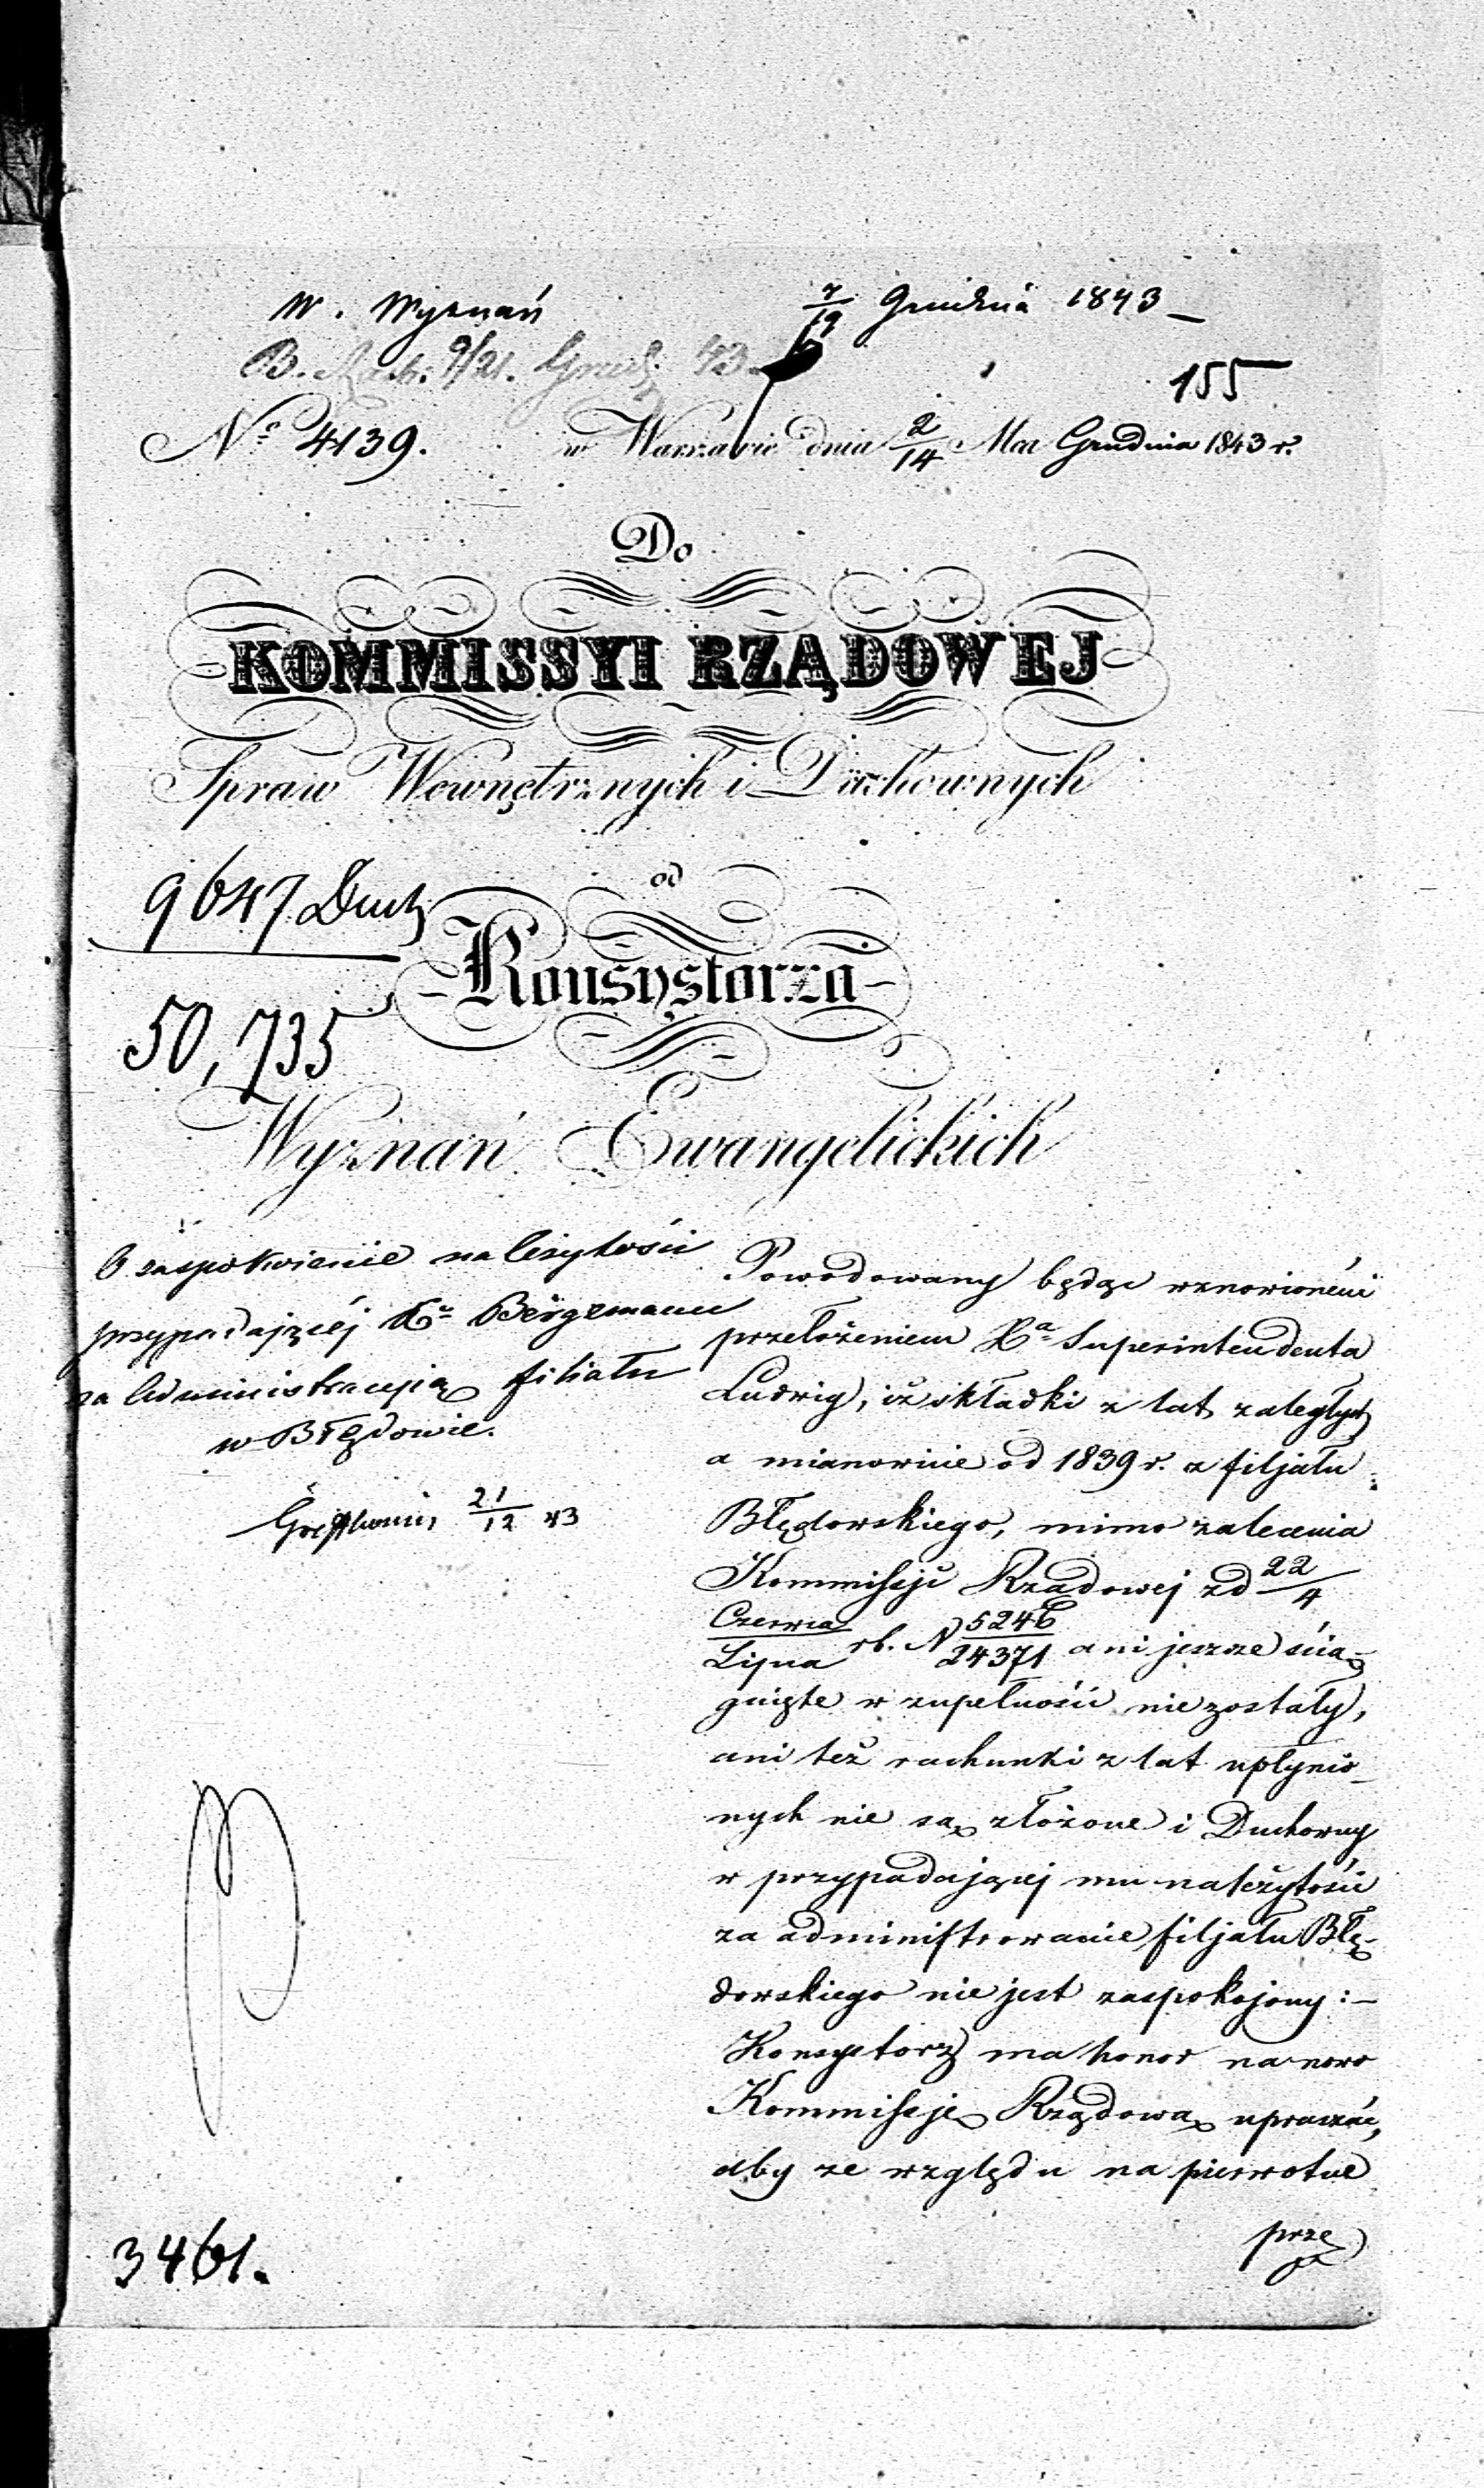 W. Wyznań 7/19 Grudnia 1843
B. Rach: 9/21. Grud: 43.
155
No 4139. w Warszawie dnia 2/14 Mca Grudnia 1843 r.
Do
KOMMISSYI RZĄDOWEJ
Spraw Wewnętrznych i Duchownych
9647 Duch
od
Konsystorza
50,735
Wyznań Ewangelickich
O zaspokoienie należytości
przypadającéj Xu Bergemann
za Administracyią filiału
w Błędowie.
21/12 43
Powodowany będąc wznowionemi
przełożeniem Xa Superintendenta
Ludwig, iż składki z lat zaległych
a mianowicie od 1839 r. z filjału
Błędowskiego, mimo zalecenia
Kommissji Rządowej z d 22/4
Czerwca/Lipca rb. N 5246/24371 ani jeszcze ścią-
gnięte w zupełności nie zostały,
ani też rachunki z lat upłynio-
nych nie są złożone i Duchowny
w przypadającej mu należytości
za administrowanie filjału Błę-
dowskiego nie jest zaspokojony: –
Konsystorz ma honor na nowo
Kommissję Rządową upraszać,
aby ze względu na pierwotne
prze
3461.